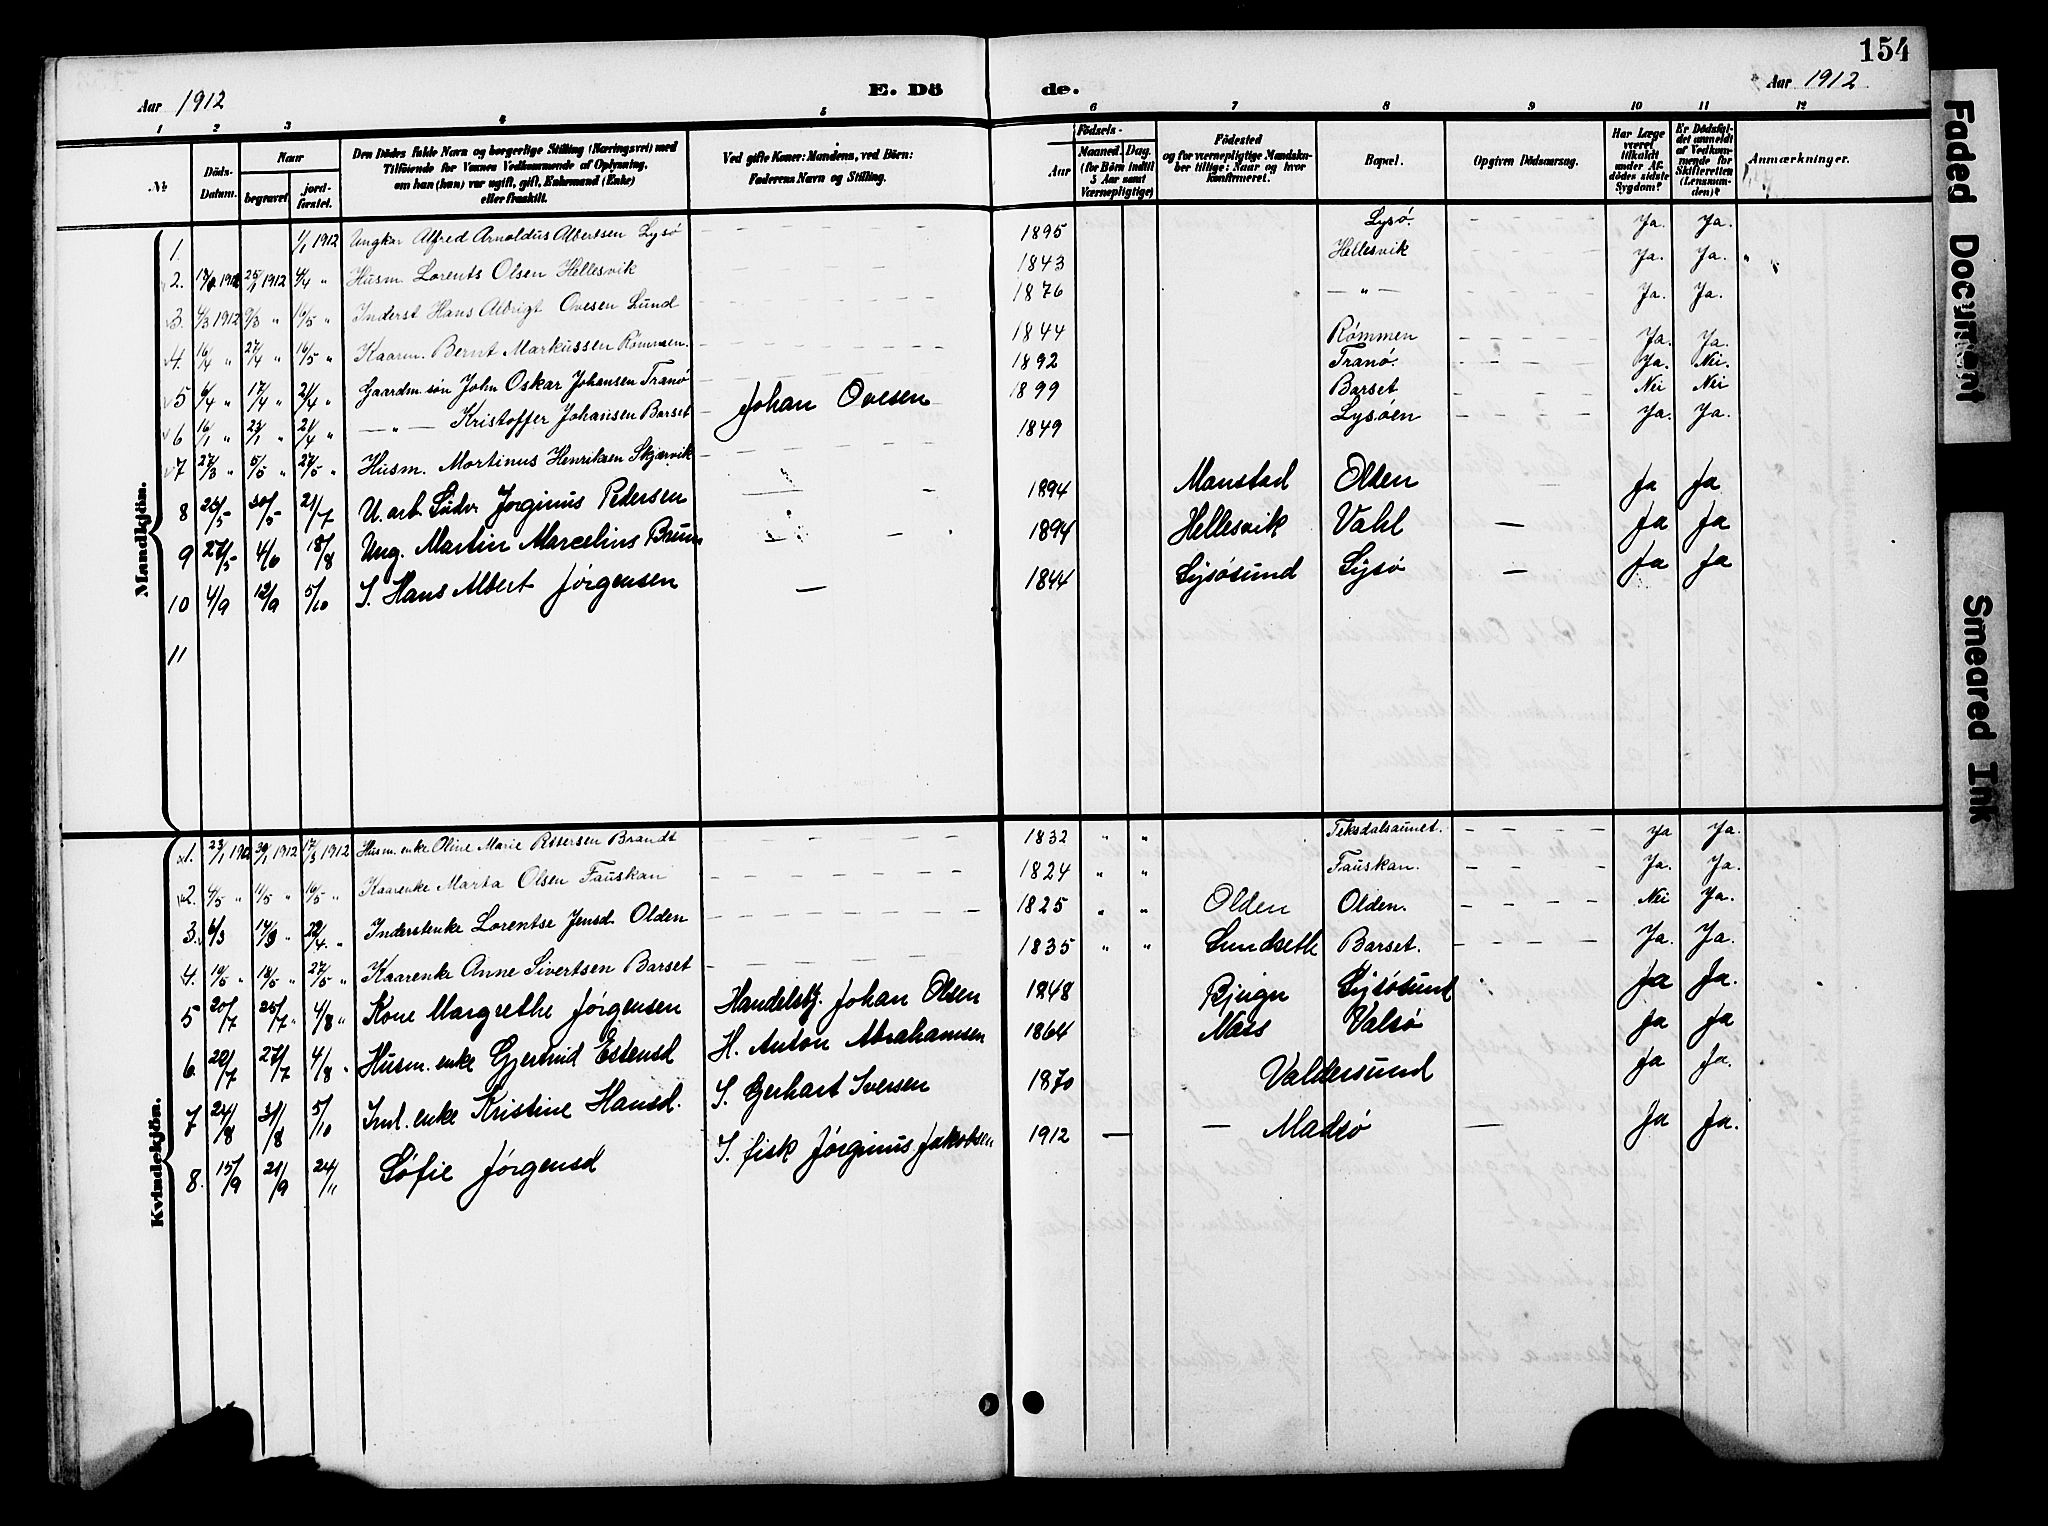 154
Aar 1912
E. Dö de.
Aar 1912
1 2 3 4 5 6 7 8 9 10 11 12
№
Döds-Datum.
Naar
begravet.
jord-fæstet.
Den Dödes fulde Navn og borgerlige Stilling (Næringsvei) med
Tilföiende for Voxnes Vedkommende af Oplysning,
om han (hun) var ugift, gift, Enkemand (Enke)
eller fraskilt.
Ved gifte Koner: Mandens, ved Börn:
Faderens Navn og Stilling.
Födsels-
Aar
Maaned. Dag.
(for Börn indtil
5 Aar samt
Værnepligtige)
Födested
og for værnepligtige Mandska-
ber tillige: Naar og hvor
konfirmeret.
Bopæl.
Opgiven Dödsaarsag.
Har Læge
været
tilkaldt
under Af-
dödes sidste
Sygdom?
Er Dödsfal-
det anmeldt
af Vedkom-
mende for
Skifteretten
(Lensman-
den)?
Anmærkninger.
Mandkjön.
1. 1/1 1912 Ungkar Alfred Arnoldus Albertsen Lysø - - - - - 1895 Lysø. - - - - Ja. Ja.
2. 1912 25/1 1912 4/4 " Husm. Lorents Olsen Hellesvik - - - - - 1843 Hellesvik - - - - Ja. Ja. "
3. 4/3 1912 9/3 " 16/5 " Inderst Hans Albrigt Ovesen Lund - - - - - 1876 — " — Ja. Ja.
4. 16/4 " 27/4 " 16/5 " Kaarm. Bernt Markussen Rømmen. - - - - - 1844 Rømmen - - - - Ja. Ja.
5 6/4 " 17/4 " 21/4 " Gaardm. søn John Oskar Johansen Tranø - - - - - 1892 Tranø. - - - - Ja. Nei.
6 16/1 " 23/1 " 21/4 " — " — Kristoffer Johansen Barset - Johan Ovesen - 1899 Barset - - - - Nei Nei
7 27/3 " 5/5 " 27/5 " Husm. Mortinus Henriksen Skjærvik - - - - - 1849 Lysøen - - - - Ja. Ja.
8 23/5 30/5 21/7 U. arb. Ludv. Jørginus Pedersen — 1894 Manstad Olden Ja Ja
9 27/5 4/6 18/8 Ung. Martin Marcelius Bruun — 1894 Hellesvik Vahl — Ja Ja
10 4/9 12/9 5/10 I. Hans Albert Jørgensen — 1844 Lysøsund Lysø — Ja Ja
11
Kvindekjön.
1. 23/1 1912 30/1 1912 17/3 1912 Husm. enke Oline Marie Petersen Brandt - - - - - 1832 " " Teksdalsaunet. - - - - Ja Ja.
2. 4/5 " 11/5 " 16/5 " Kaarenke Marta Olsen Fauskan - - - - - 1824 " " Fauskan. - - - Ja. Ja.
3. 6/3 14/3 " 22/4. " Inderstenke Lorentse Jensd. Olden - - - - - 1825 " " Olden Olden. - - - - Nei Ja.
4. 10/5 " 18/5 " 27/5 " Kaarenke Anne Sivertsen Barset - - - - - 1835 " " Sundseth Barset. - - - - Ja. Ja.
5 20/7 25/7 " 4/8 " Kone Margrethe Jørgensen Handelsbtj. Johan Olsen 1848 Bjugn Lysøsund Ja Ja.
6 20/7 27/7 4/8 " Husm. enke Gjertrud Estensd H. Anton Abrahamsen 1864 Næs Valsø Ja Ja
7 24/8 31/8 5/10 Inl. enke Kristine Hansd. I. Gerhart Iversen 1870 Valdersund Ja Ja.
8. 15/9 21/9 24/11 Søfie Jørgensd I. fisk Jørginus Jakobsen 1912 — — Madsø — Ja Ja.
Faded Document
Smeared Ink